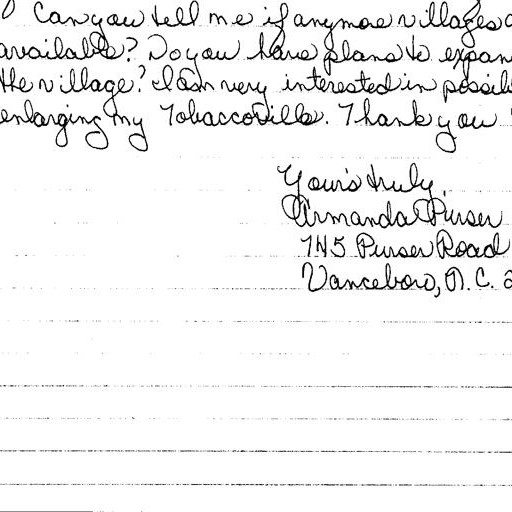 Can you tell me if anymore villages
available? Do you have plans to expan
the village? I am very interested in possib
enlarging my Tobaccoville. Thank you
Your's truly,
Armanda Purser
745 Purser Road
Vanceboro, N.C. 2